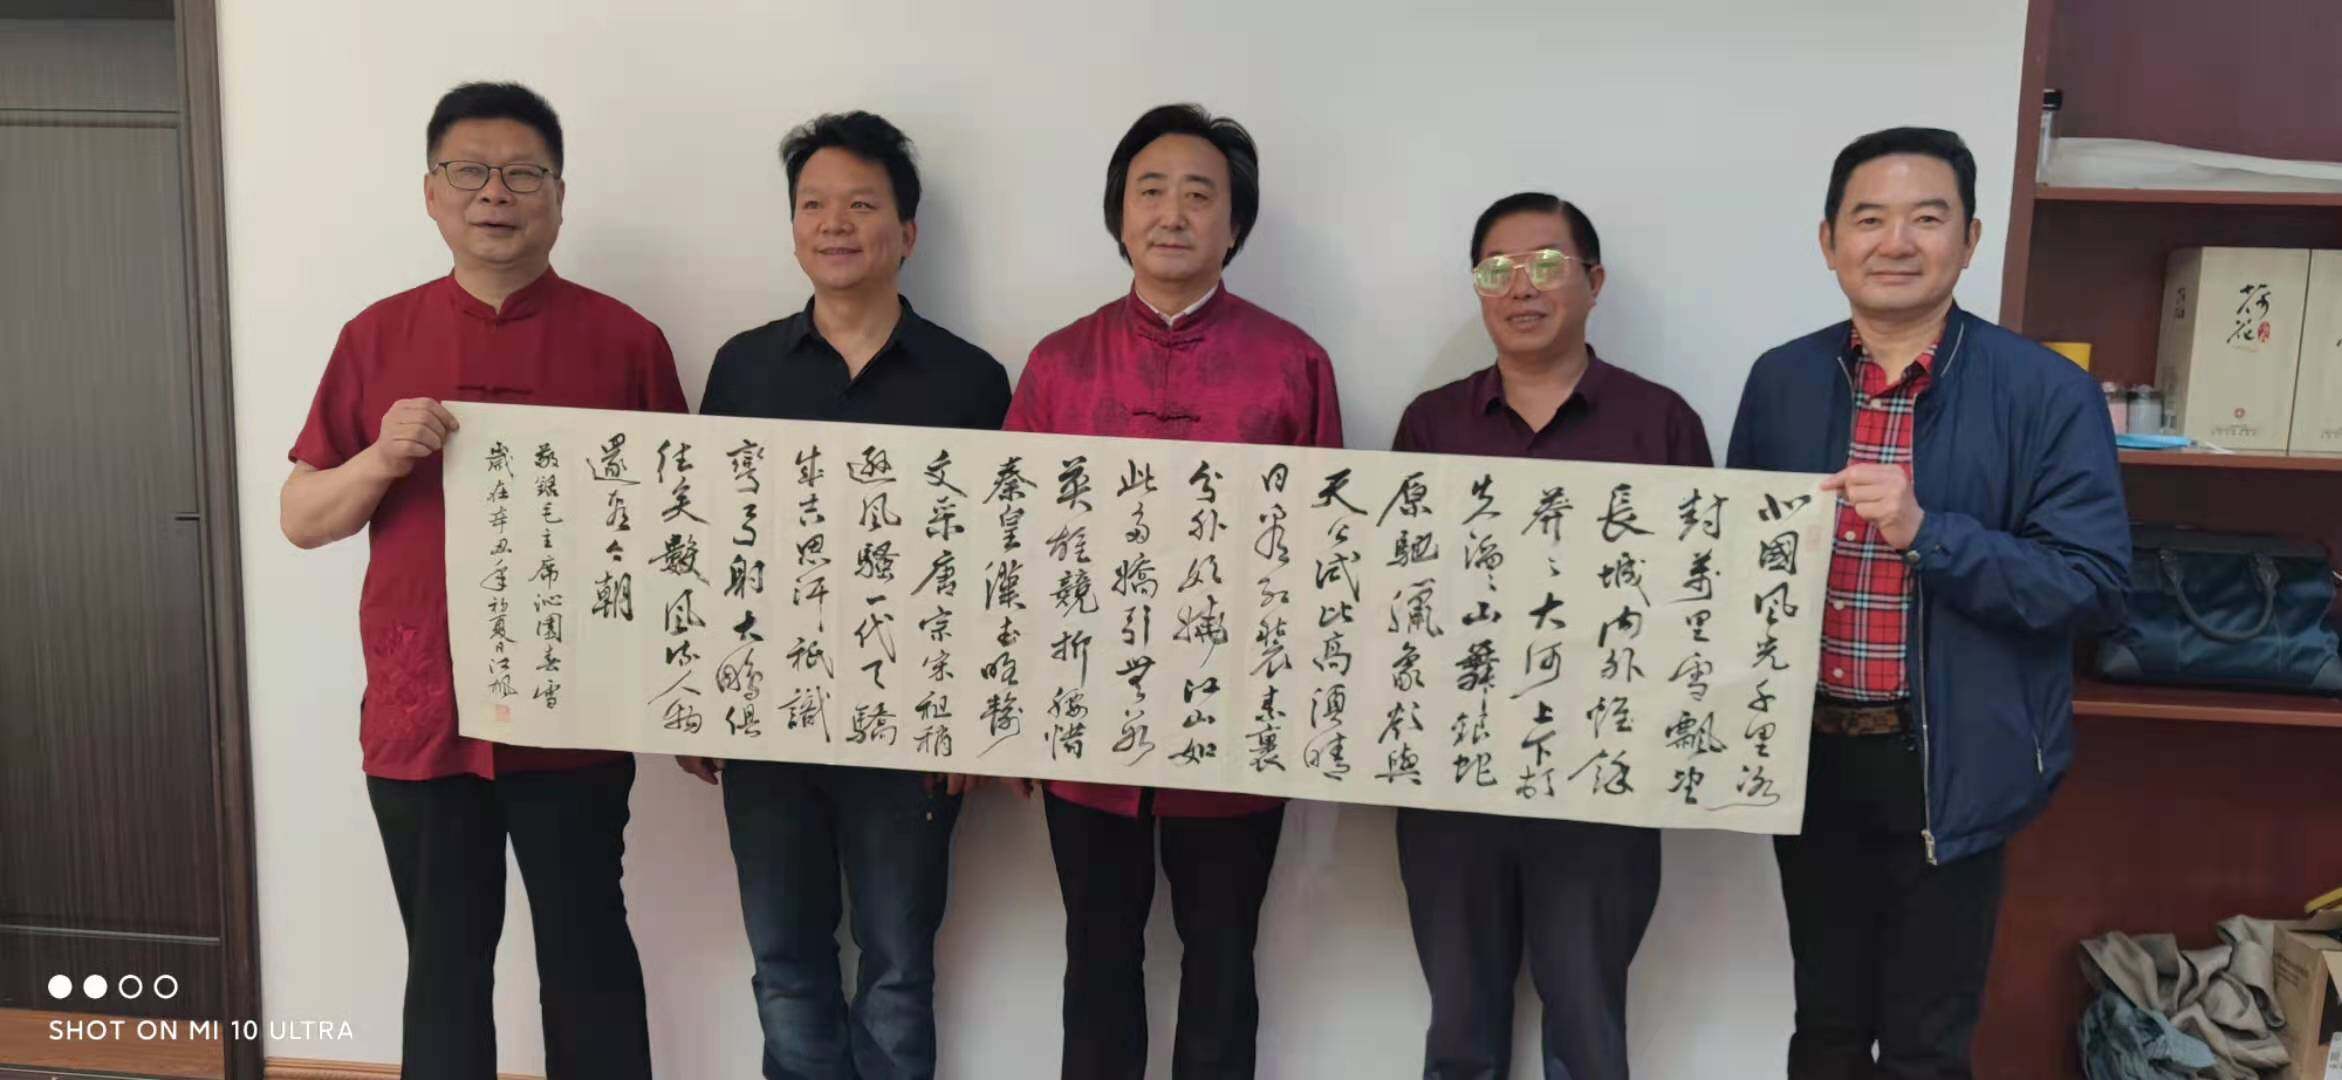 北國風光千里冰
封萬里雪飄望
長城內外惟餘
莽〻大河上下頓
失滔〻山舞銀蛇
原馳臘象欲與
天公試比高須晴
日看紅裝素裹
分外妖嬈江山如
此多嬌引無數
英雄競折腰惜
秦皇漢武略輸
文采唐宗宋祖稍
遜風騷一代天驕
成吉思汗祇識
彎弓射大鵰俱
往矣數風流人物
還看今朝
敬錄毛主席沁園春雪
歲在辛丑年初夏日江楓
荷花
SHOT ON MI 10 ULTRA